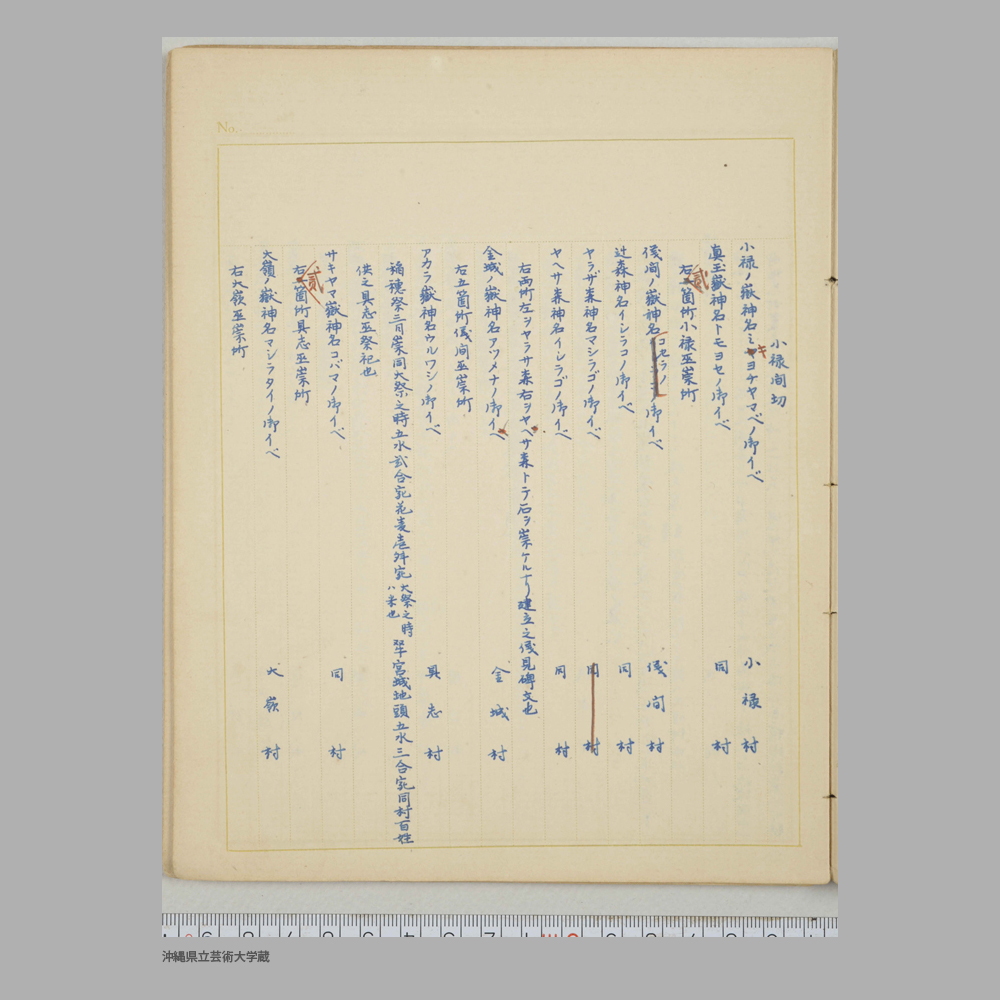 No.
小禄間切
小禄ノ嶽神名ミヤキヨチヤマベノ御イベ 小禄村
真玉嶽神名トモヨセノ御イベ 同村
右貳箇所小禄巫崇所
儀間ノ嶽神名コセラノ御イベ 儀間村
辻森神名イシラコノ御イベ 同村
ヤラザ森神名マシラゴノ御イベ 同村
ヤヘサ森神名イシラゴノ御イベ 同村
右両所左ヲヤラサ森右ヲヤヘサ森トテ石ヲ崇ケルナリ建立之儀見碑文也
金城ノ嶽神名アツメナノ御イベ 金城村
右五箇所儀間巫崇所
アカラ嶽神名ウルワシノ御イベ 具志村
稲穂祭三日崇同大祭之時五水貳合宛花麦壱舛宛大祭之時ハ米也 宮城地頭五水三合宛同村百姓
供之具志巫祭祀也
サキヤマ嶽神名コバマノ御イベ 同村
右貳箇所具志巫崇所
大嶺ノ嶽神名マシラタイノ御イベ 大嶺村
右大嶺巫崇所
沖縄県立芸術大学蔵